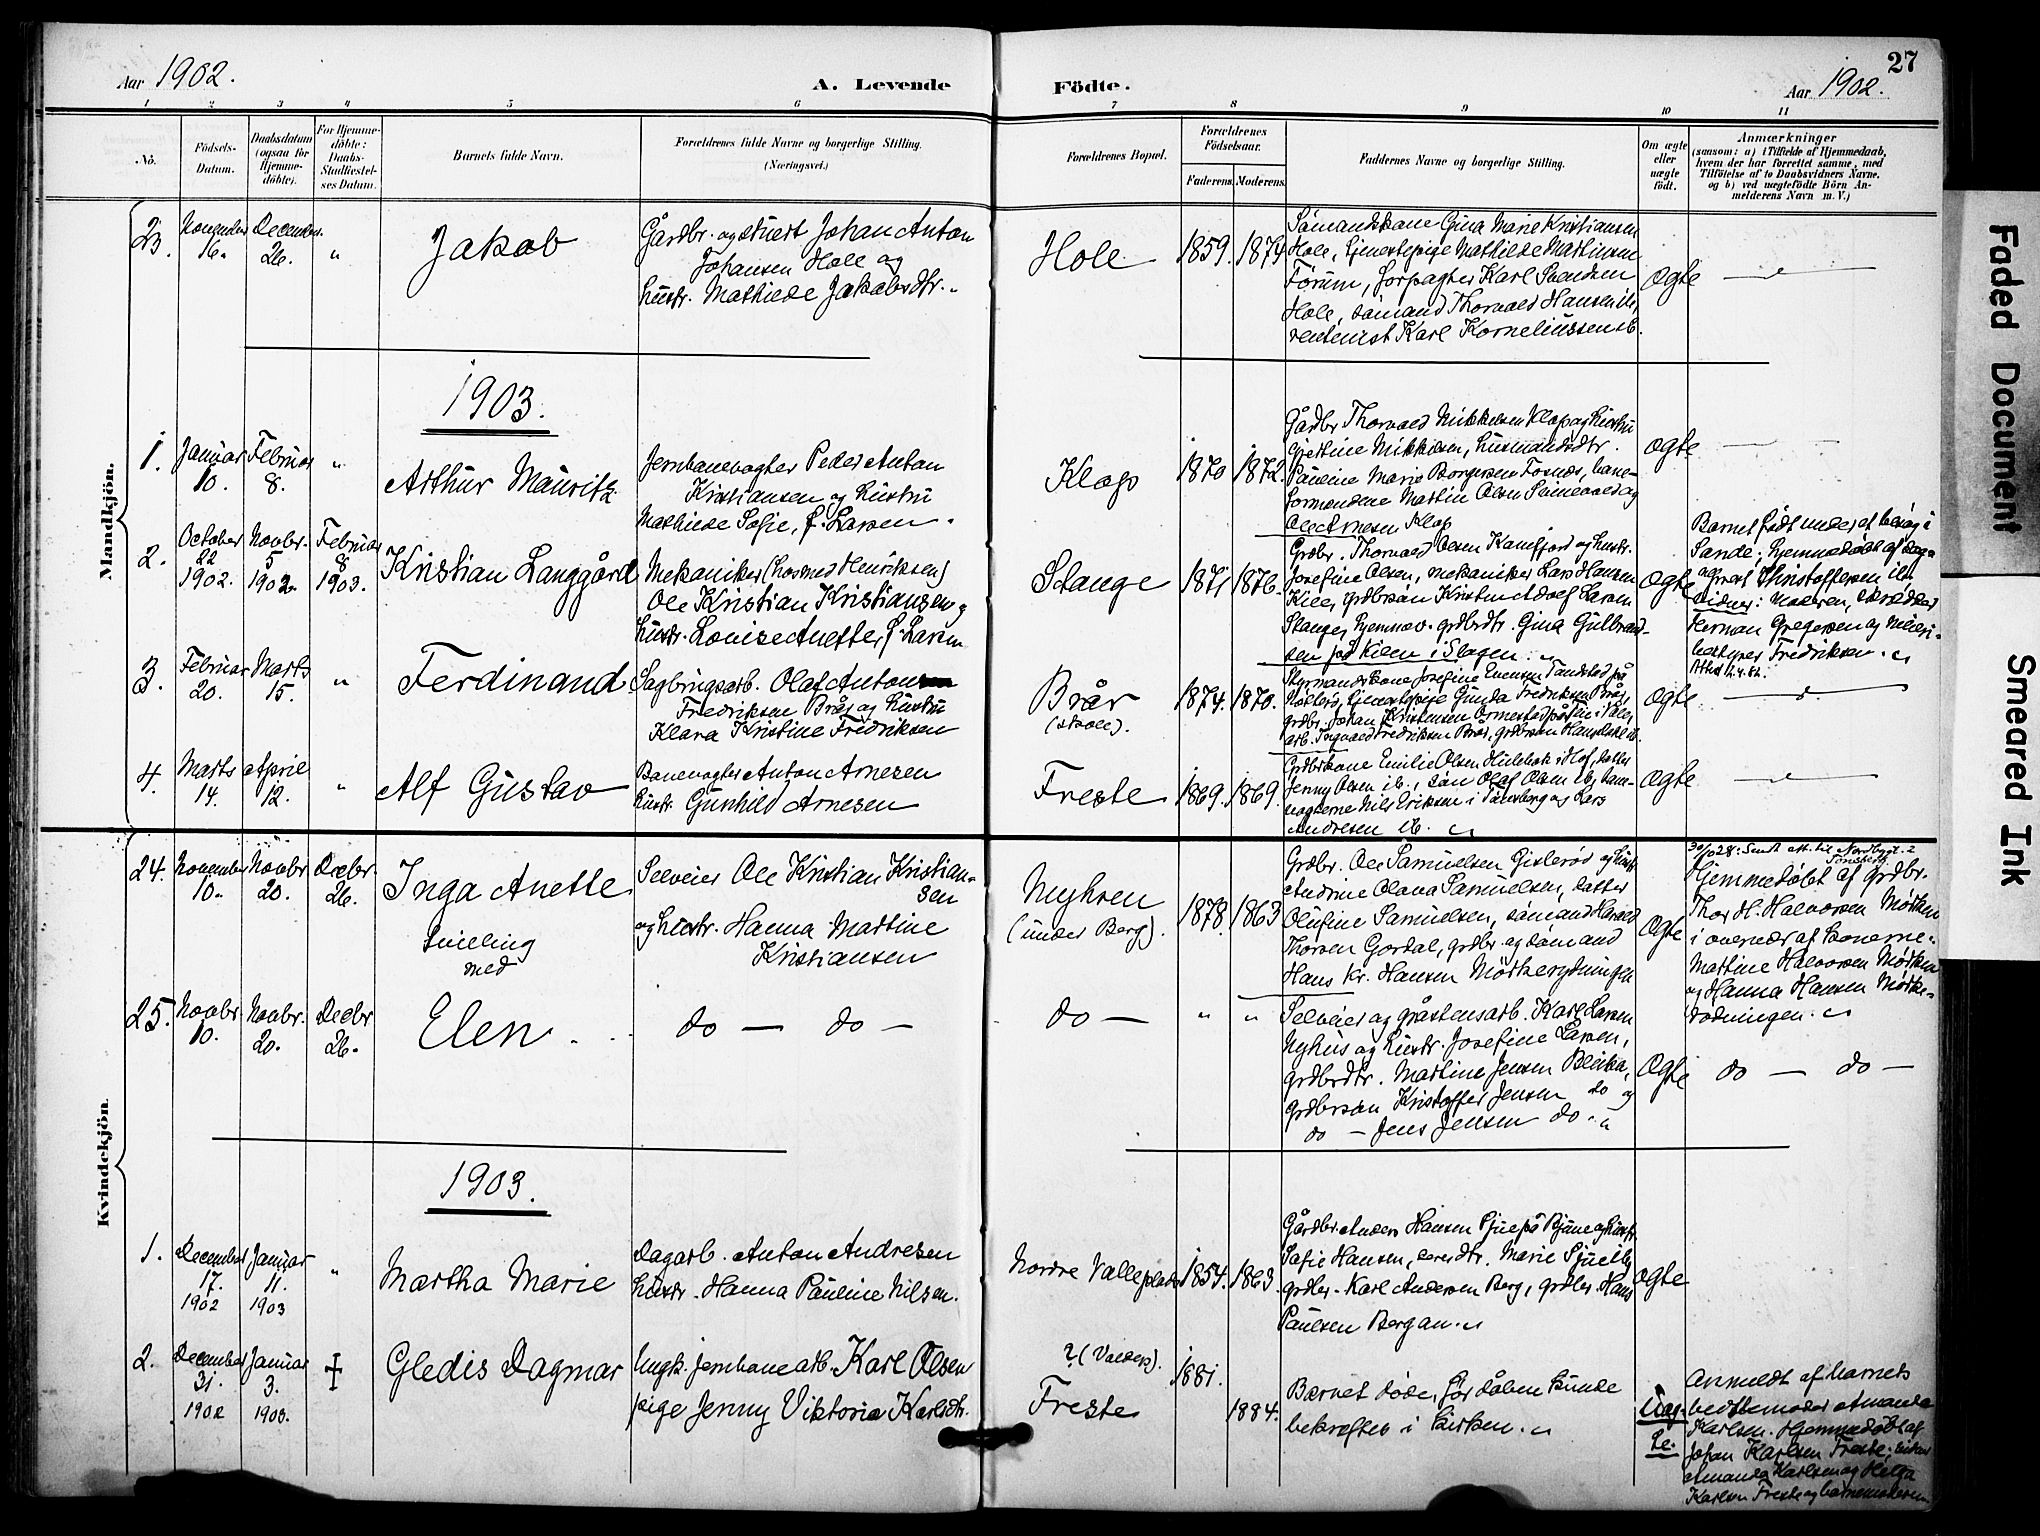 27
Aar 1902.
A. Levende
Födte.
Aar 1902.
1 2 3 4 5 6 7 8 9 10 11
No.
Födsels-
Datum.
Daabsdatum
(ogsaa for
Hjemme-
döbte).
For Hjemme-
döbte:
Daabs-
Stadfæstel-
ses Datum.
Barnets fulde Navn.
Forældrenes fulde Navne og borgerlige Stilling.
(Næringsvei.)
Forældrenes Bopæl.
Forældrenes
Födselsaar.
Faderens.
Moderens.
Faddernes Navne og borgerlige Stilling.
Om ægte
eller
uægte
födt.
Anmærkninger
(saasom: a) i Tilfælde af Hjemmedaab,
hvem der har forrettet samme, med
Tilföielse af to Daabsvidners Navne,
og b) ved uægtefödte Börn An-
melderens Navn m. V.)
Mandkjön.
23.
November
16.
December
26.
"
Jakob
Gårdbr. og Johan Anton
Johansen Hole og
hustr. Mathilde Jakobsdtr.
Hole
1859.
1874
Sømandskone Gina Marie Kristiansen
Hole, tjenestepige Mathilde Mathisen
Førum, forpagter Karl Svendsen
Hole, sømand Thorvald Hansen ib,
rentenist Karl Korneliussen ib.
Ægte
1903.
1.
Januar
10.
Februar
8.
"
Arthur Mauritz
Jernbanevogter Peder Anton
Kristiansen og hustru
Mathilde Sofie, f. Larsen.
Klop
1870
1872.
Gårdbr Thorvald Mikkelsen Klop og hustru
Grettine Mikkelsen, husmandsdtr.
Pauline Marie Borgersen Fosnæs, bane-
formændene Martin Olsen og
Ole Arnesen Klop
Ægte
2.
October
22
1902.
Novbr.
5
1902.
Februar
8
1903.
Kristian Langgård
Mekaniker (hos med Henriksen)
Ole Kristian Kristiansen og
hustr. Lovise Anette, f. Larsen
Stange
1871
1876.
Grdbr. Thorvald Olsen Kamfjord og hustr.
Josefine Olsen, mekaniker Lars Hansen
Kile, grdbrsøn Kristen Adolf Larsen
Stange, hjemmev. grdbrdtr. Gina Gulbrand-
sen på Kilen i Slagen.
Ægte
Barnet født under et besøg i
Sande; hjemmedøbt af dag-
Kristoffersen ib.
Vidner: Moderen, skrædder
Herman Gregersen og meieri-
bestyrer Fredriksen.
3.
Februar
20.
Marts
15.
"
Ferdinand
Sagbrugsarb. Olaf Anton
Fredriksen Brår og hustru
Klara Kristine Fredriksen
Brår
(skole).
1874.
1870.
Styrmandskone Josefine Evensen på
Nøtterø, tjenestepige Gunda Fredriksen Brår,
grdbr. Johan Kristensen
arb. Ingvald Fredriksen Brår, grdbrsøn
Ægte
4.
Marts
14.
April
12.
"
Alf Gustav
Banevogter Anton Arnesen
hustr. Gunhild Arnesen
Freste
1869.
1869.
Grdbrkone Emilie Olsen i Hof, datter
Jenny Olsen ib., søn Olaf Olsen ib, bane-
vogterne Nils Eriksen i Tønsberg og Lars
Andresen ib.
Ægte
Kvindekjön.
24.
November
10.
Novbr
20.
Decbr.
26.
Inga Anette
tvilling
med
Selveier Ole Kristian Kristian-
sen
og hustr. Hanna Martine
Kristiansen
Myhren
(under Berg).
1878.
1863
Grdbr. Ole Samuelsen Gislerød og hustr
Andrine Olava Samuelsen, datter
Olufine Samuelsen, sømand Harald
Thorsen Gordal, grdbr. og sømand
Hans Kr. Hansen Mørkerydningen
Ægte
30/10 28: Sendt att. til Nordbygt. 2
Tønsberg
Hjemmedøbt af grdbr.
Thor H. Halvorsen Mørken
i overvær af konerne:
Martine Halvorsen Mørken
og Hanna Hansen Mørke-
rødningen.
25.
Novbr.
10.
Novbr.
20.
Decbr
26.
Elen
do — do —
do —
"
"
Selveier og gråstensarb. Karl Larsen
Nyhus og hustr. Josefine Larsen,
grdbrdtr. Martine Jensen Bleika,
grdbrsøn Kristoffer Jensen do og
do — Jens Jensen do.
Ægte
do — do —
1903.
1.
December
17.
1902
Januar
11.
1903
"
Martha Marie
Dagarb. Anton Andresen
hustr. Hanna Pauline Nilsen.
Nordre Valleplads
1854.
1863.
Gårdbr. Anders Hansen på og hustr
Sofie Hansen, deres dtr. Marie
grdbr. Karl Andersen Berg, grdbr. Hans
Paulsen Bergan.
Ægte
2.
December
31.
1902
Januar
3.
1903.
+
Gledis Dagmar
Ungk. jernbanearb. Karl Olsen
pige Jenny Viktoria Karlsdtr.
? (Valders).
Freste
1881.
1884.
Barnet døde, før dåben kunde
bekræftes i kirken.
Uæg-
te.
Anmeldt af barnets
bedstemoder Amanda
Karlsen. Hjemmedøbt af
Johan Karlsen Freste;
Amanda Karlsen og Helga
Karlsen Freste og barnemoderen
Faded Document
Smeared Ink